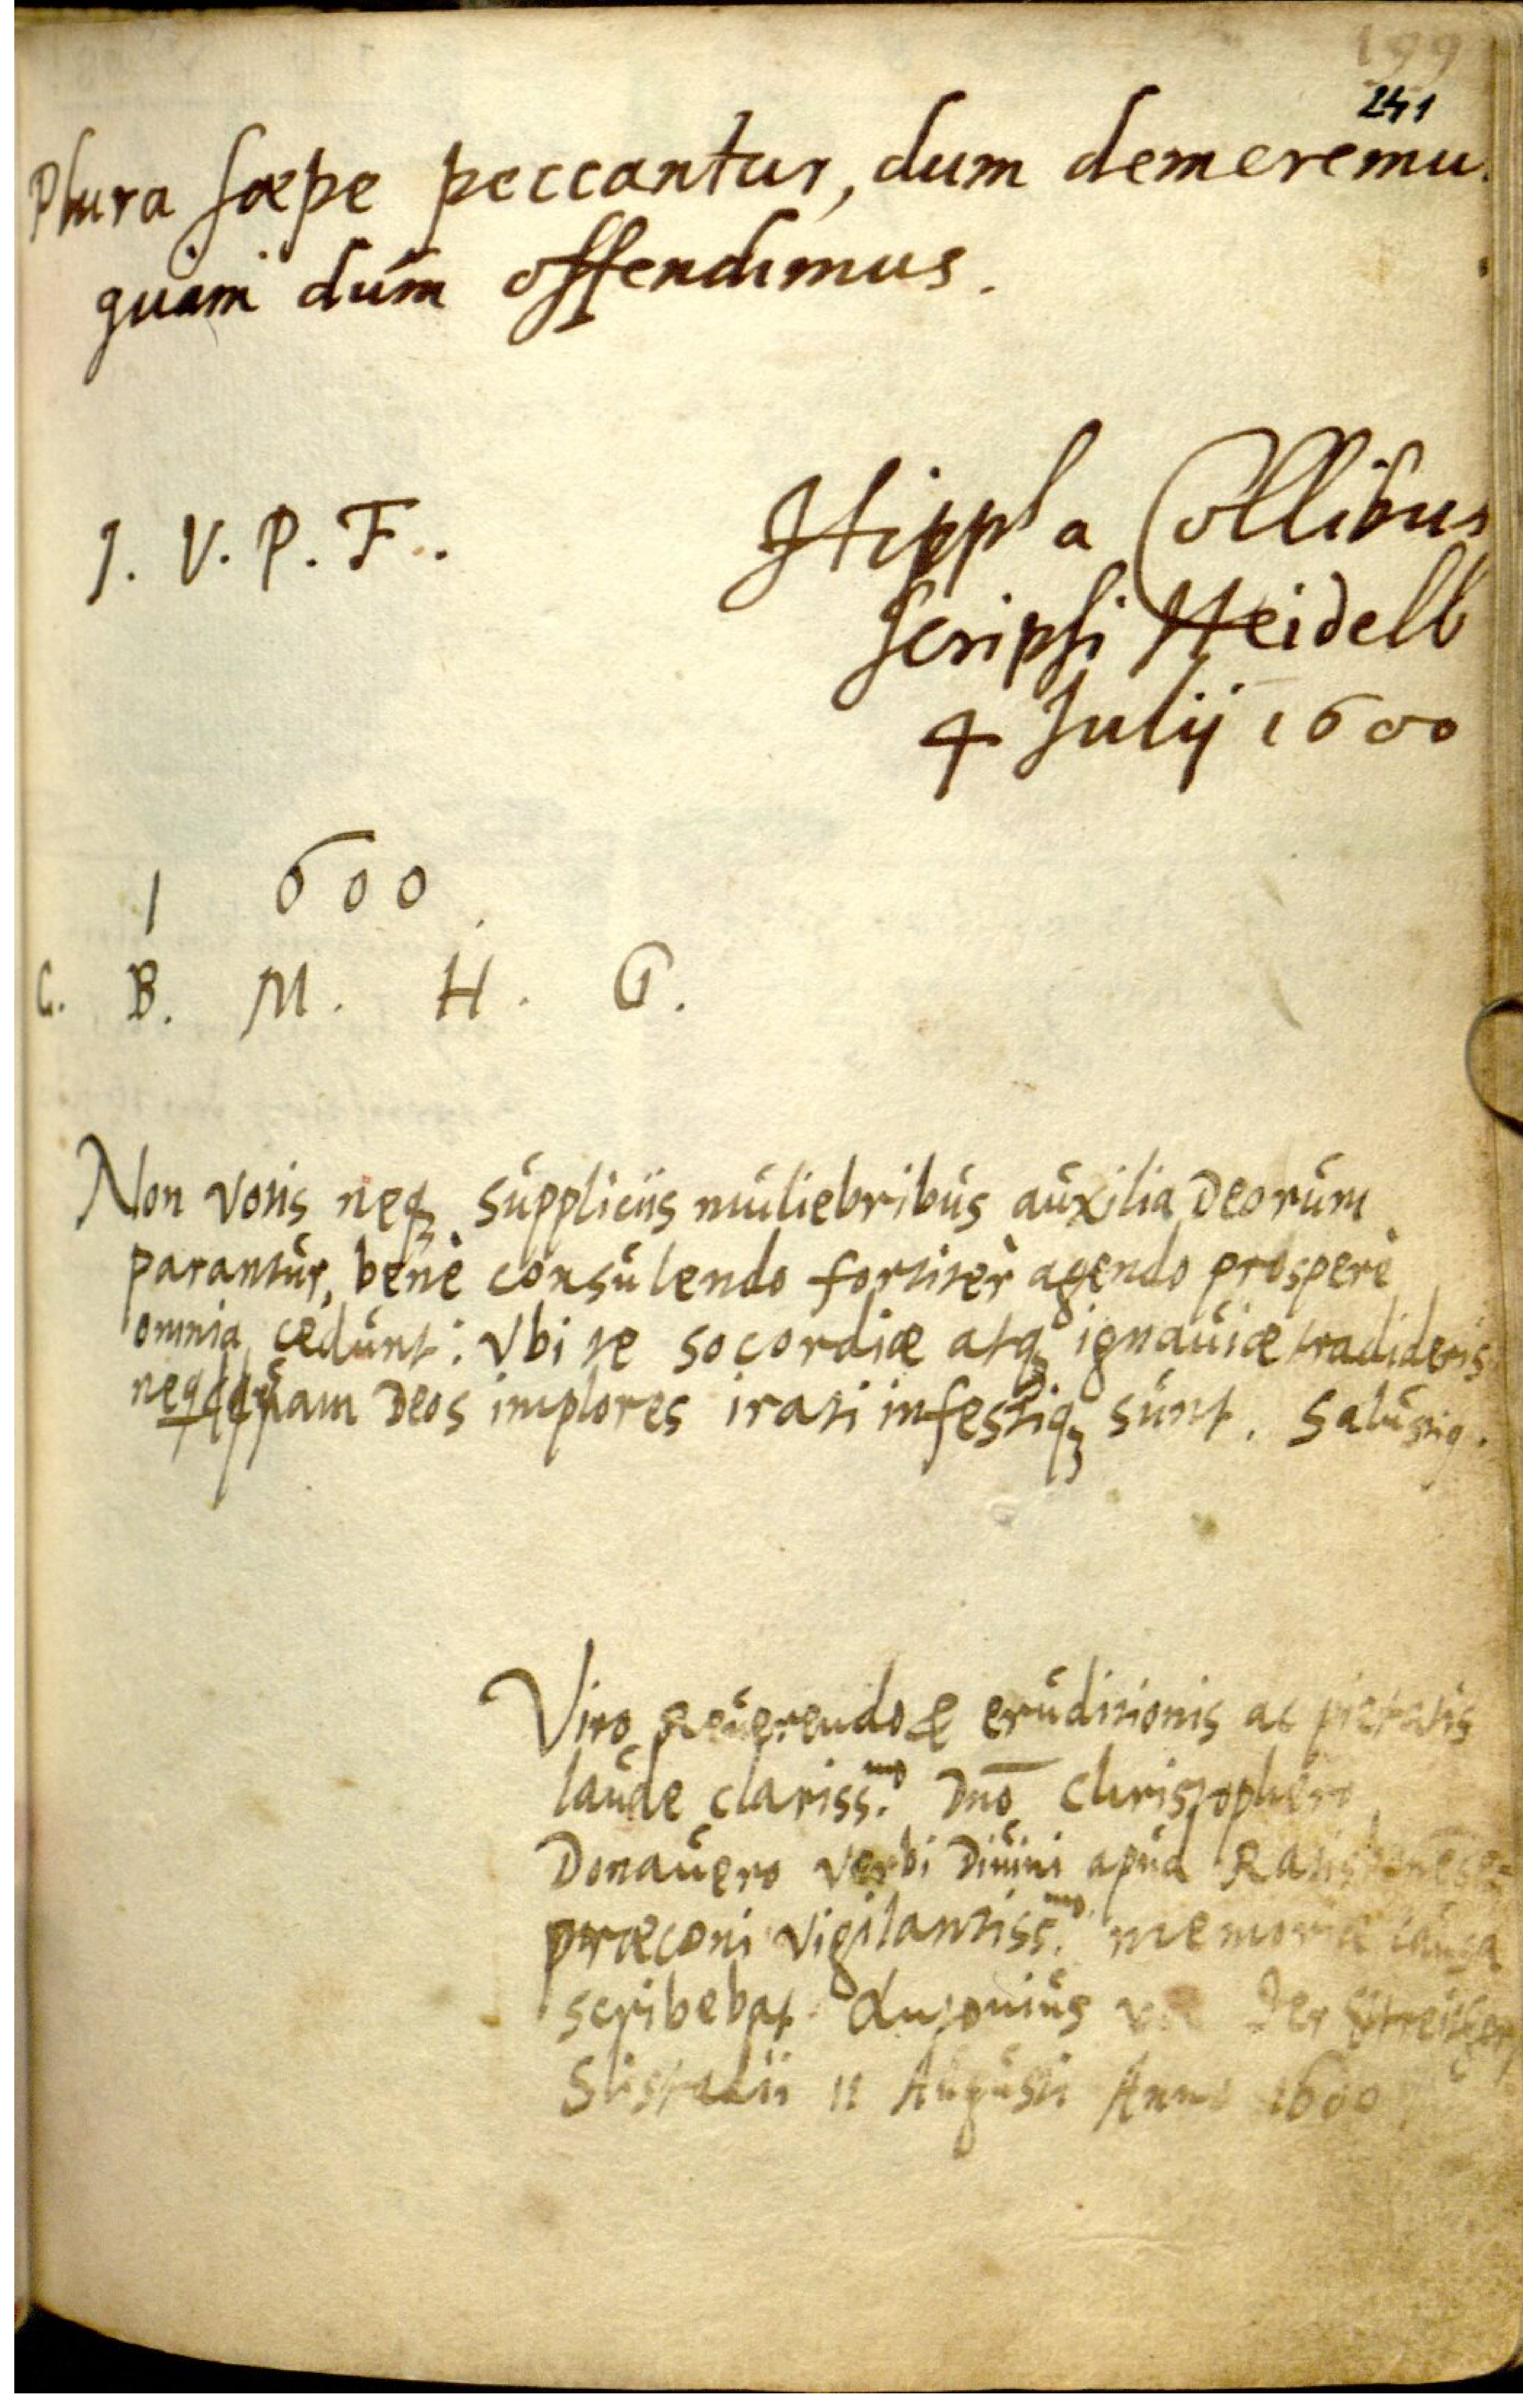 199
241
Plura sæpe peccantur, dum demeremu
quam dum offendimus.
J. V. P. F.
Hippl a Collibus
scripsi Heidelb
4 Julij 1600
1 600.
C. B. M. H. G.
Non votis neq; suppliciis muliebribus auxilia Deorum
parantur, benè consulendo fortiter agendo prosperè
omnia cedunt: Vbi te socordiæ atq; ignauiæ tradideris
Deos implores irati infestiq; sunt. Salustig.
Viro Reuerendo & eruditionis ac pietatis
laude clariss.mo Dno Christophero
Donauero Verbi Diuini apud
præconi vigilantiss.mo memoriæ causa
scribebat Antonius der
Slistadii 11 Augusti Anno 1600